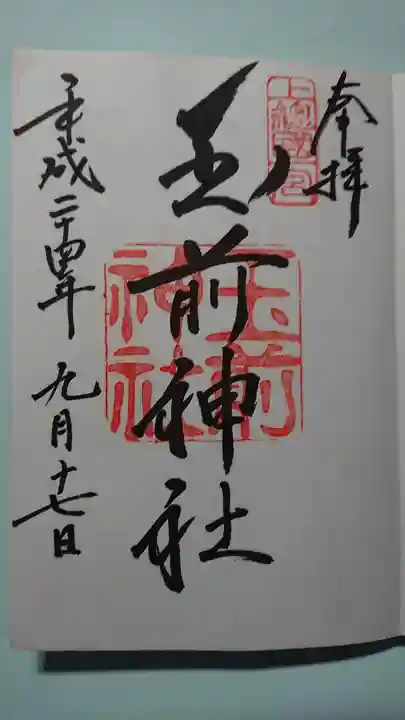 奉拝
上総国一宮
玉前神社
玉前神社
平成二十四年 九月十七日